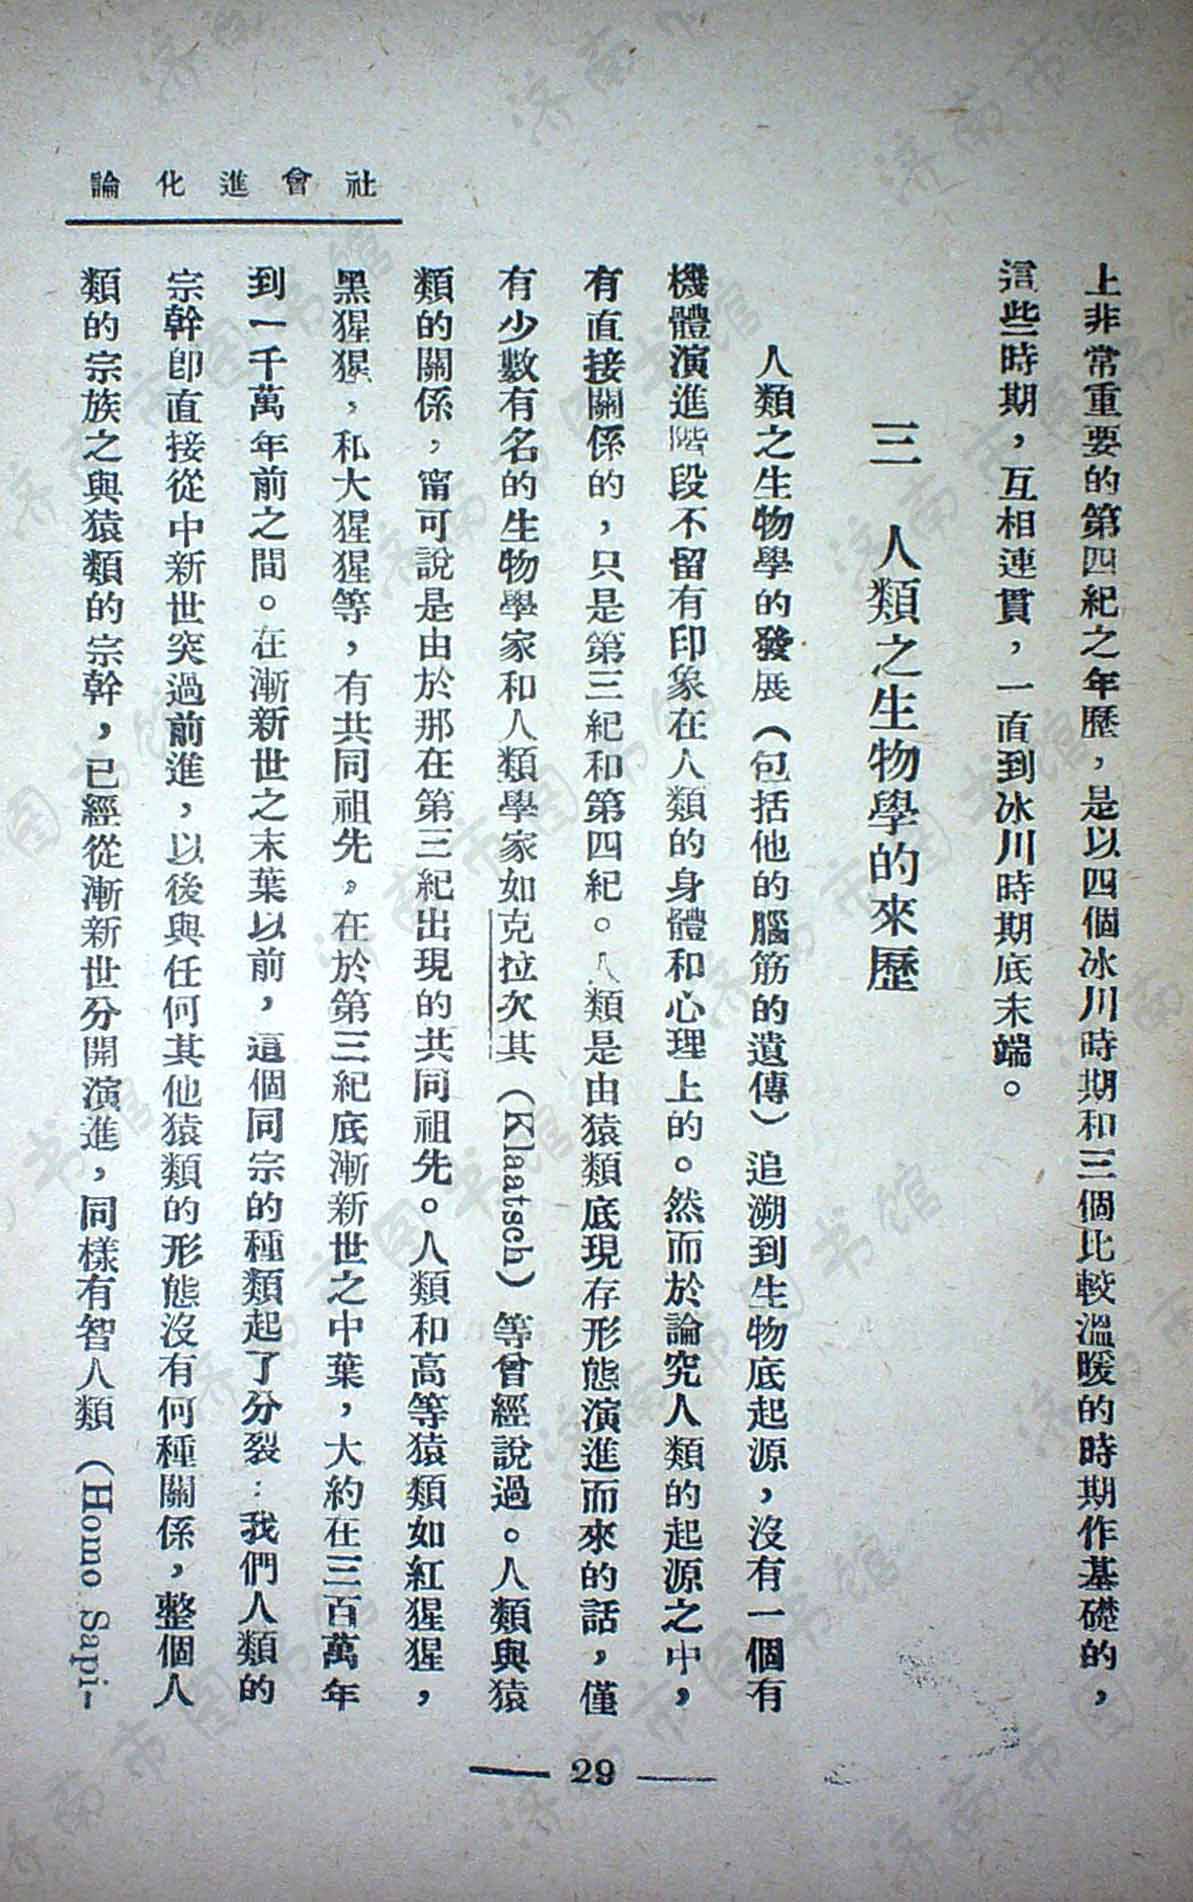 社會進化論
上非常重要的第四紀之年歷，是以四個冰川時期和三個比較溫暖的時期作基礎的，
這些時期，互相連貫，一直到冰川時期底末端。
三　人類之生物學的來歷
人類之生物學的發展（包括他的腦筋的遺傳）追溯到生物底起源，沒有一個有
機體演進階段不留有印象在人類的身體和心理上的。然而於論究人類的起源之中，
有直接關係的，只是第三紀和第四紀。人類是由猿類底現存形態演進而來的話，僅
有少數有名的生物學家和人類學家如克拉次其（Klaatsch）等曾經說過。人類與猿
類的關係，甯可說是由於那在第三紀出現的共同祖先。人類和高等猿類如紅猩猩，
黑猩猩，和大猩猩等，有共同祖先。在於第三紀底漸新世之中葉，大約在三百萬年
到一千萬年前之間。在漸新世之末葉以前，這個同宗的種類起了分裂：我們人類的
宗幹卽直接從中新世突過前進，以後與任何其他猿類的形態沒有何種關係，整個人
類的宗族之與猿類的宗幹，已經從漸新世分開演進，同樣有智人類（Homo Sapi-
29
济南市图书馆